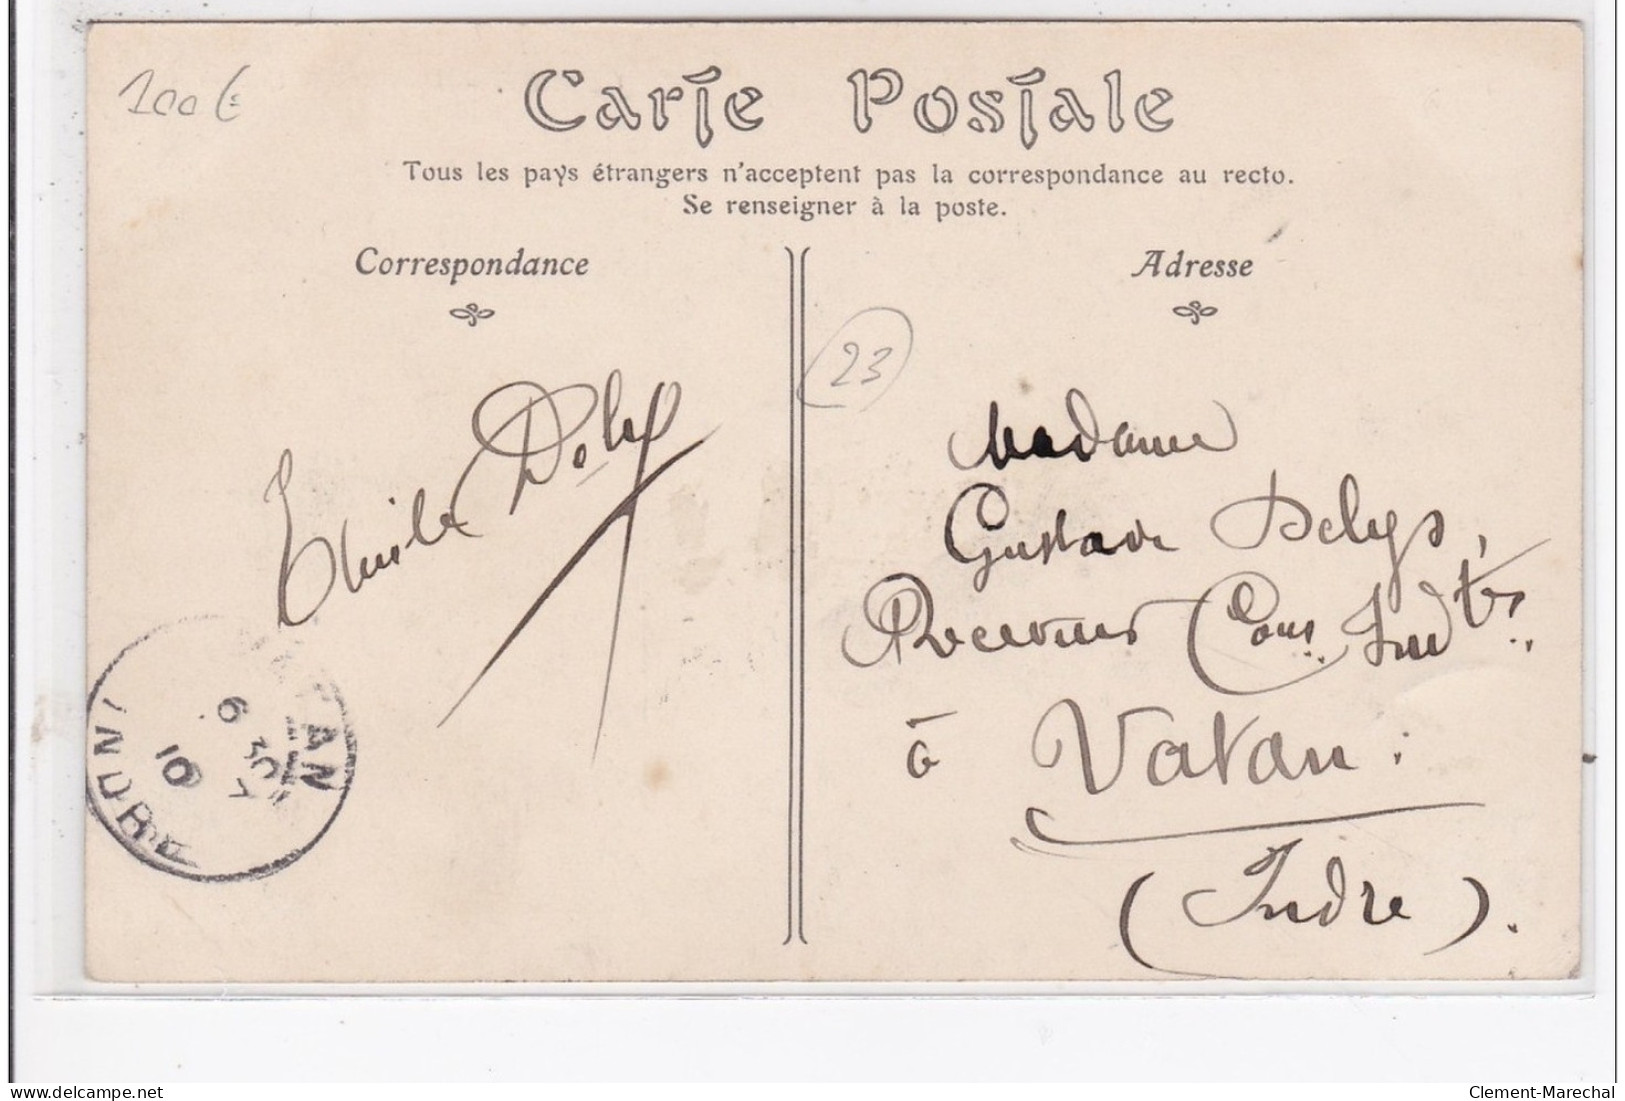 100 €
Carte Postale
Tous les pays étrangers n'acceptent pas la correspondance au recto.
Se renseigner à la poste.
Correspondance
Adresse
23
Emile Delys
Madame
Gustave Delys,
Receveur Cons. Ind tes
à Vatan.
(Indre).
6 30
7
10
INDRE
Clement-Marechal